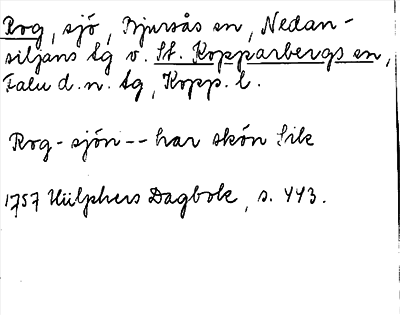 Rog, sjö, Bjursås sn, Nedan-
siljans tg v. St. Kopparbergs sn,
Falu d.n. tg, Kopp. l.
Rog-sjön -- har skön Sik
1757 Hülphers Dagbok, s. 443.